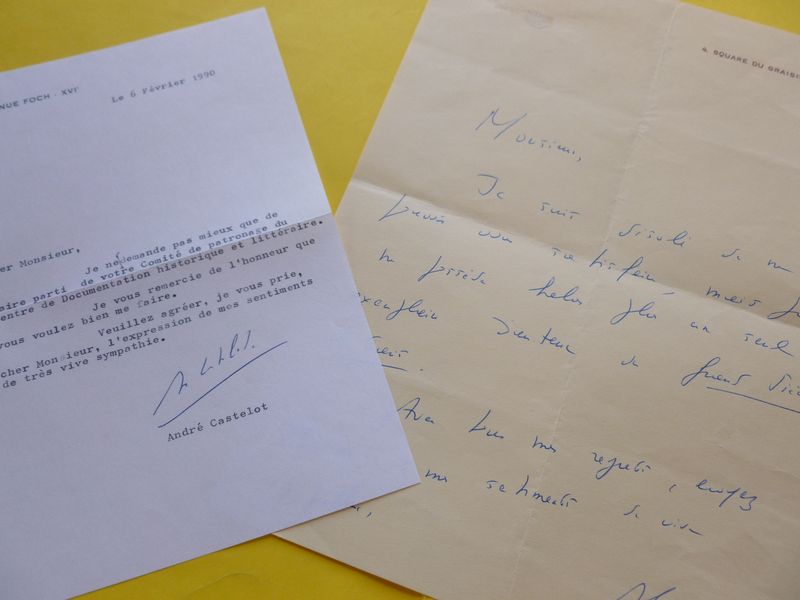 NUE FOCH - XVIᵉ
Le 6 Février 1990
her Monsieur,
Je ne demande pas mieux que de
aire parti de votre Comité de patronage du
entre de Documentation historique et littéraire.
Je vous remercie de l'honneur que
vous voulez bien me faire.
Veuillez agréer, je vous prie,
cher Monsieur, l'expression de mes sentiments
de très vive sympathie.
André Castelot
4, SQUARE DU GRAISI
Monsieur,
Je suis désolé de ne
pouvoir vous satisfaire, mais je
ne possède hélas plus un seul
exemplaire
Avec tous mes regrets, croyez
mes sentiments de vive